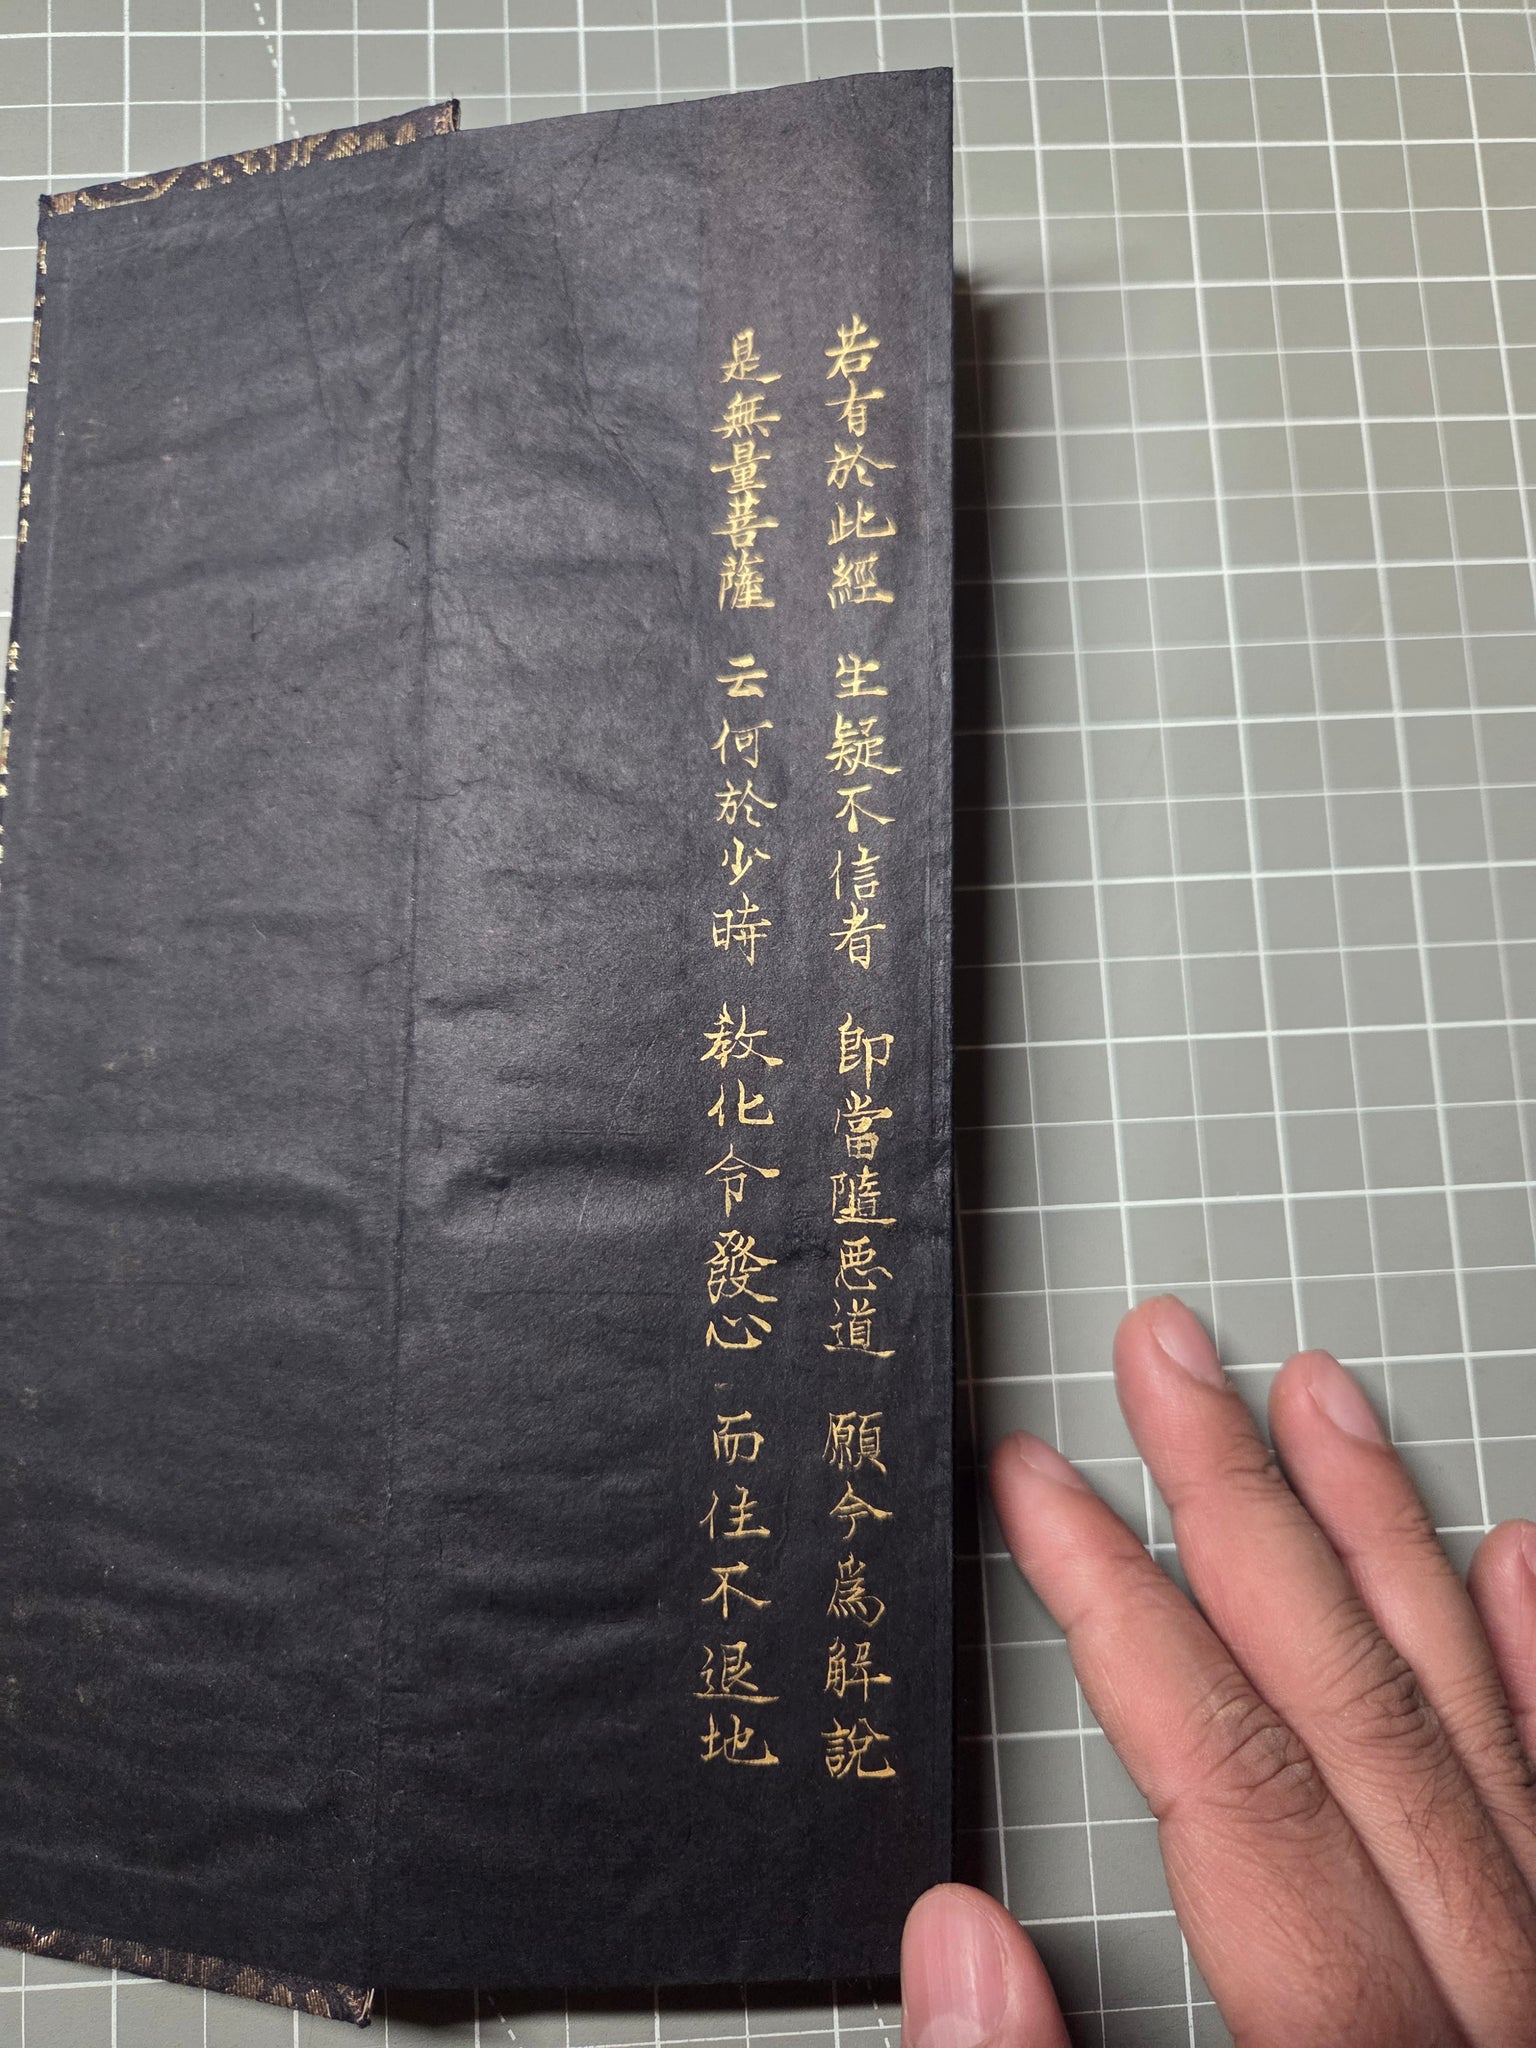 若有於此經 生疑不信者 卽當隨惡道 願今爲解說
是無量菩薩 云何於少時 教化令發心 而住不退地